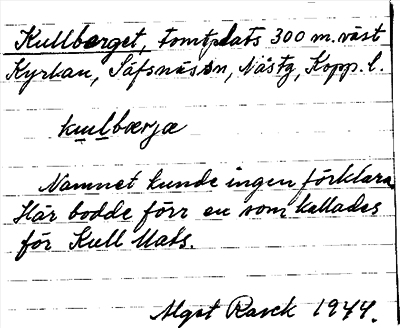 Kullberget, tomtplats 300 m. väst
Kyrkan, Säfsnäs sn, Nåstg, Kopp. l.
kullbærjæ
Namnet kunde ingen förklara.
Här bodde förr en som kallades
för Kull Mats.
Algot Rasck 1944.